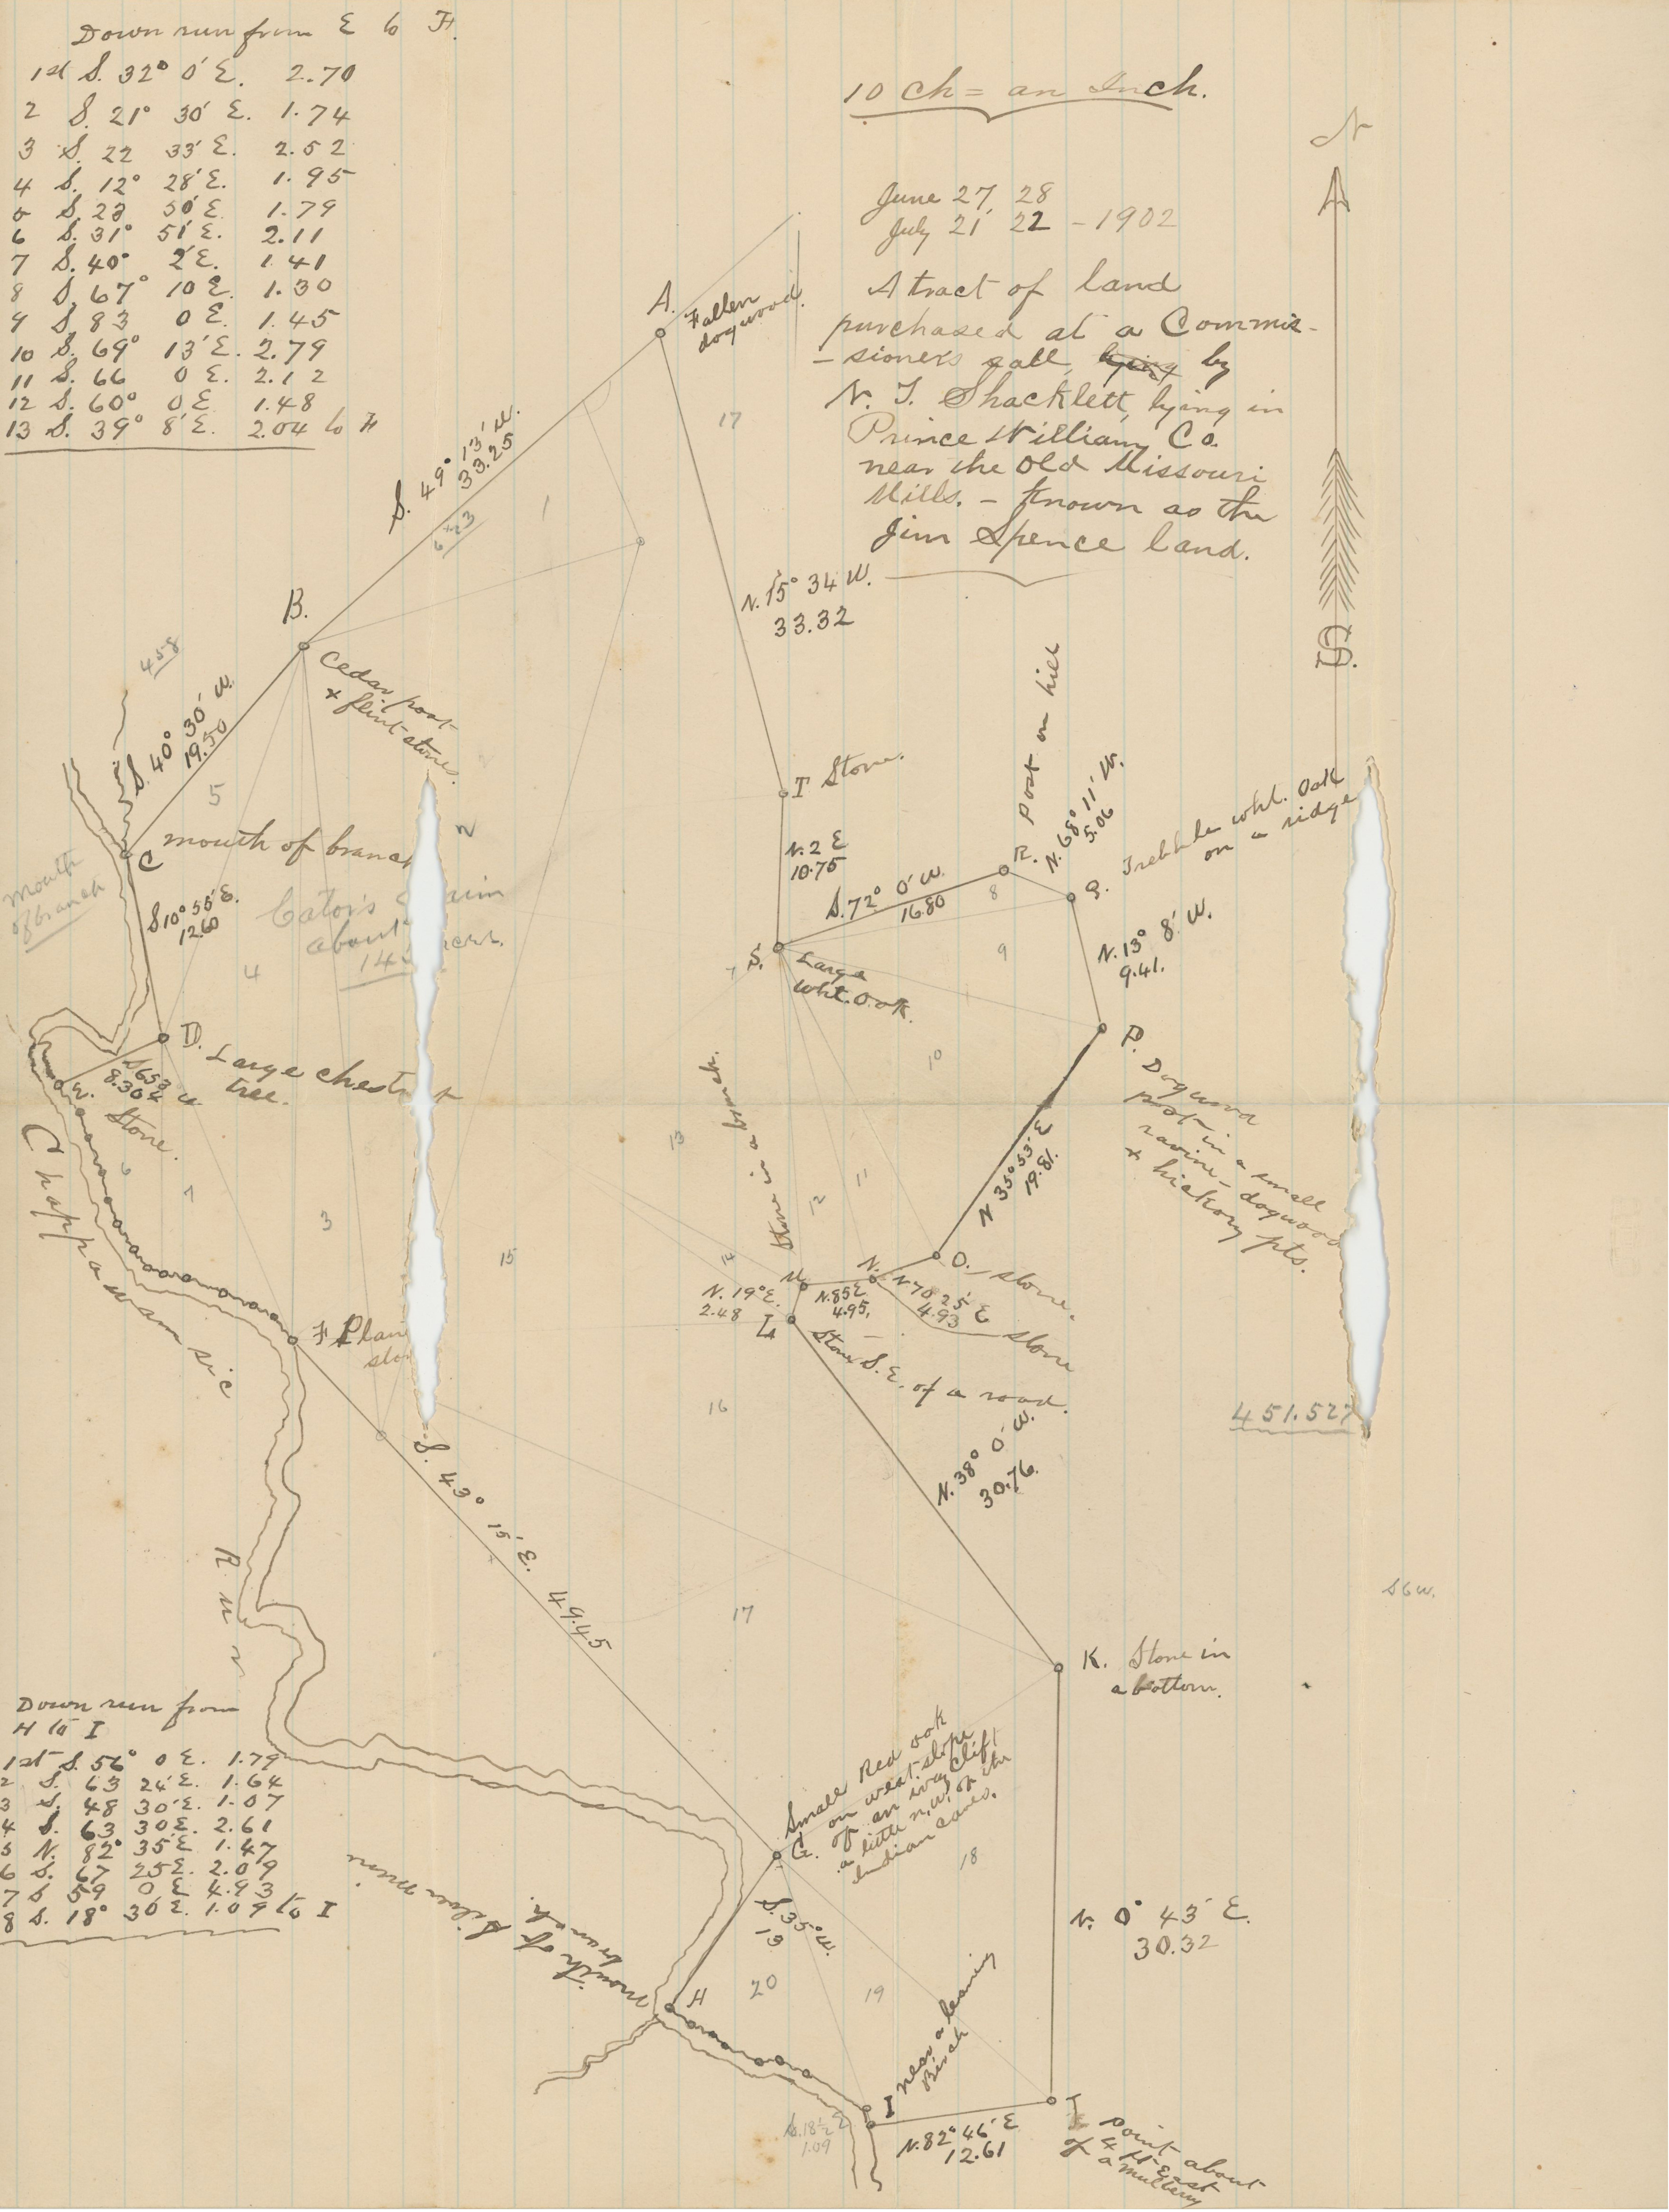 Down run from E to F.
1st S. 32° 0' E. 2.70
2 S. 21° 30' E. 1.74
3 S. 22 33' E. 2.52
4 S. 12° 28' E. 1.95
5 S. 23 50' E. 1.79
6 S. 31° 51' E. 2.11
7 S. 40° 2' E. 1.41
8 S. 67° 10 E. 1.30
9 S 83 0 E. 1.45
10 S. 69° 13' E. 2.79
11 S. 66 0 E. 2.12
12 S. 60° 0 E 1.48
13 S. 39° 8' E. 2.04 to F
10 Ch = an Inch.
N
June 27, 28
July 21, 22 - 1902
A tract of land
purchased at a Commis-
-sioner's sale, by
N. T. Shacklett, lying in
Prince William Co.
near the Old Missouri
Mills. - Known as the
Jim Spence land.
S.
A.
Fallen
dogwood.
17
S. 49° 13' W.
33.25
1
N. 15° 34 W.
33.32
B.
Cedar post
+ flint stones.
458
S. 40° 30' W.
19.50
5
2
C mouth of branch
Mouth
of branch
S 10° 55' E.
12.60
Cator's
about
4
D. Large chest t
tree.
8.30
E. Stone.
Chappawamsic
6
7
3
15
F
S. 43° 15' E. 49.45
Run
T Stone.
N. 2 E
10.75
S. 72° 0' W.
16.80
R. Post on hill
N. 68° 11' W.
5.06
8
Q. Trebble wht. Oak
on a ridge
N. 13° 8' W.
9.41.
9
S. Large
wht. Oak.
7
10
P. Dogwood
post in a small
ravine - dogwood
+ hickory pts.
N 35° 53' E
19.81.
11
12
13
14
Stone in a branch.
M
N. 19° E.
2.48
L
N. 85 E
4.95.
N.
N 70 25' E
4.93
stone
O. stone.
Stone S.E. of a road.
16
N. 38° 0' W.
30.76.
451.527
S 6 W.
17
K. Stone in
a bottom.
Small Red oak
on west slope
of an ivy Clift
a little n.w. of the
Indian caves.
G.
18
S. 35° W.
13
N. 0° 43' E.
30.32
Down run from
H to I
1st S. 56° 0 E. 1.79
2 S. 63 24' E. 1.64
3 S. 48 30' E. 1.07
4 S. 63 30 E. 2.61
5 N. 82° 35' E 1.47
6 S. 67 25 E. 2.09
7 S 59 0 E 4.93
8 S. 18° 30' E. 1.09 to I
mouth of Silver Mine
branch.
H
20
19
I near a leaning
Birch
S. 18½ E
1.09
N. 82° 46' E
12.61
point about
4 ft East
of a Mulberry